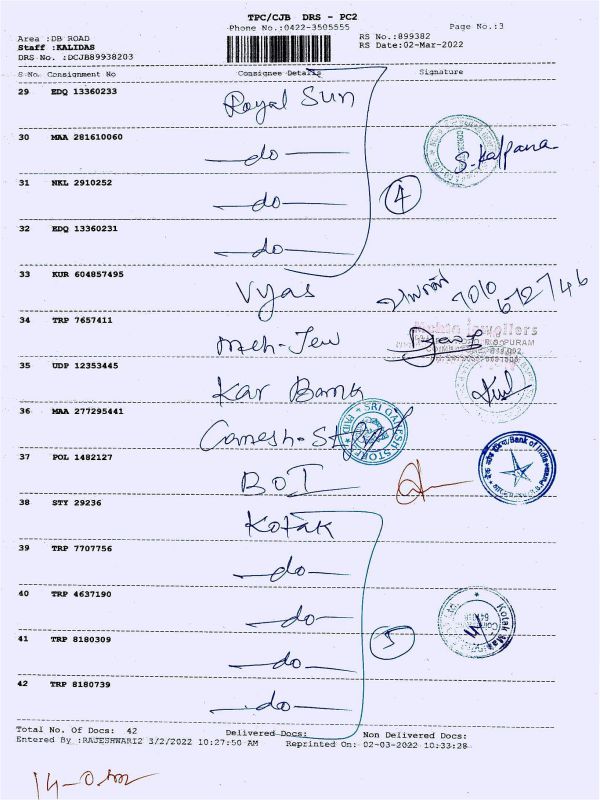 TPC/CJB DRS - PC2
Phone No.:0422-3505555
Page No.:3
Area :DB ROAD
RS No.:899382
Staff :KALIDAS
RS Date:02-Mar-2022
DRS No. :DCJB89938203
S No. Consignment No Consignee Details Signature
29 EDQ 13360233 Royal Sun
30 MAA 281610060 -do-
S. Kalpana
31 NKL 2910252 -do-
4
32 EDQ 13360231 -do-
33 KUR 604857495 Vyas
34 TRP 7657411 Meh-Jew
35 UDP 12353445 Kar Bank
36 MAA 277295441 Ganesh-St
SRI GANESH STORE
37 POL 1482127 BOI
Bank of India
38 STY 29236 Kotak
39 TRP 7707756 -do-
40 TRP 4637190 -do-
Kotak Mah
5
41 TRP 8180309 -do-
42 TRP 8180739 -do-
Total No. Of Docs: 42 Delivered Docs: Non Delivered Docs:
Entered By :RAJESHWARI2 3/2/2022 10:27:50 AM Reprinted On: 02-03-2022 10:33:28